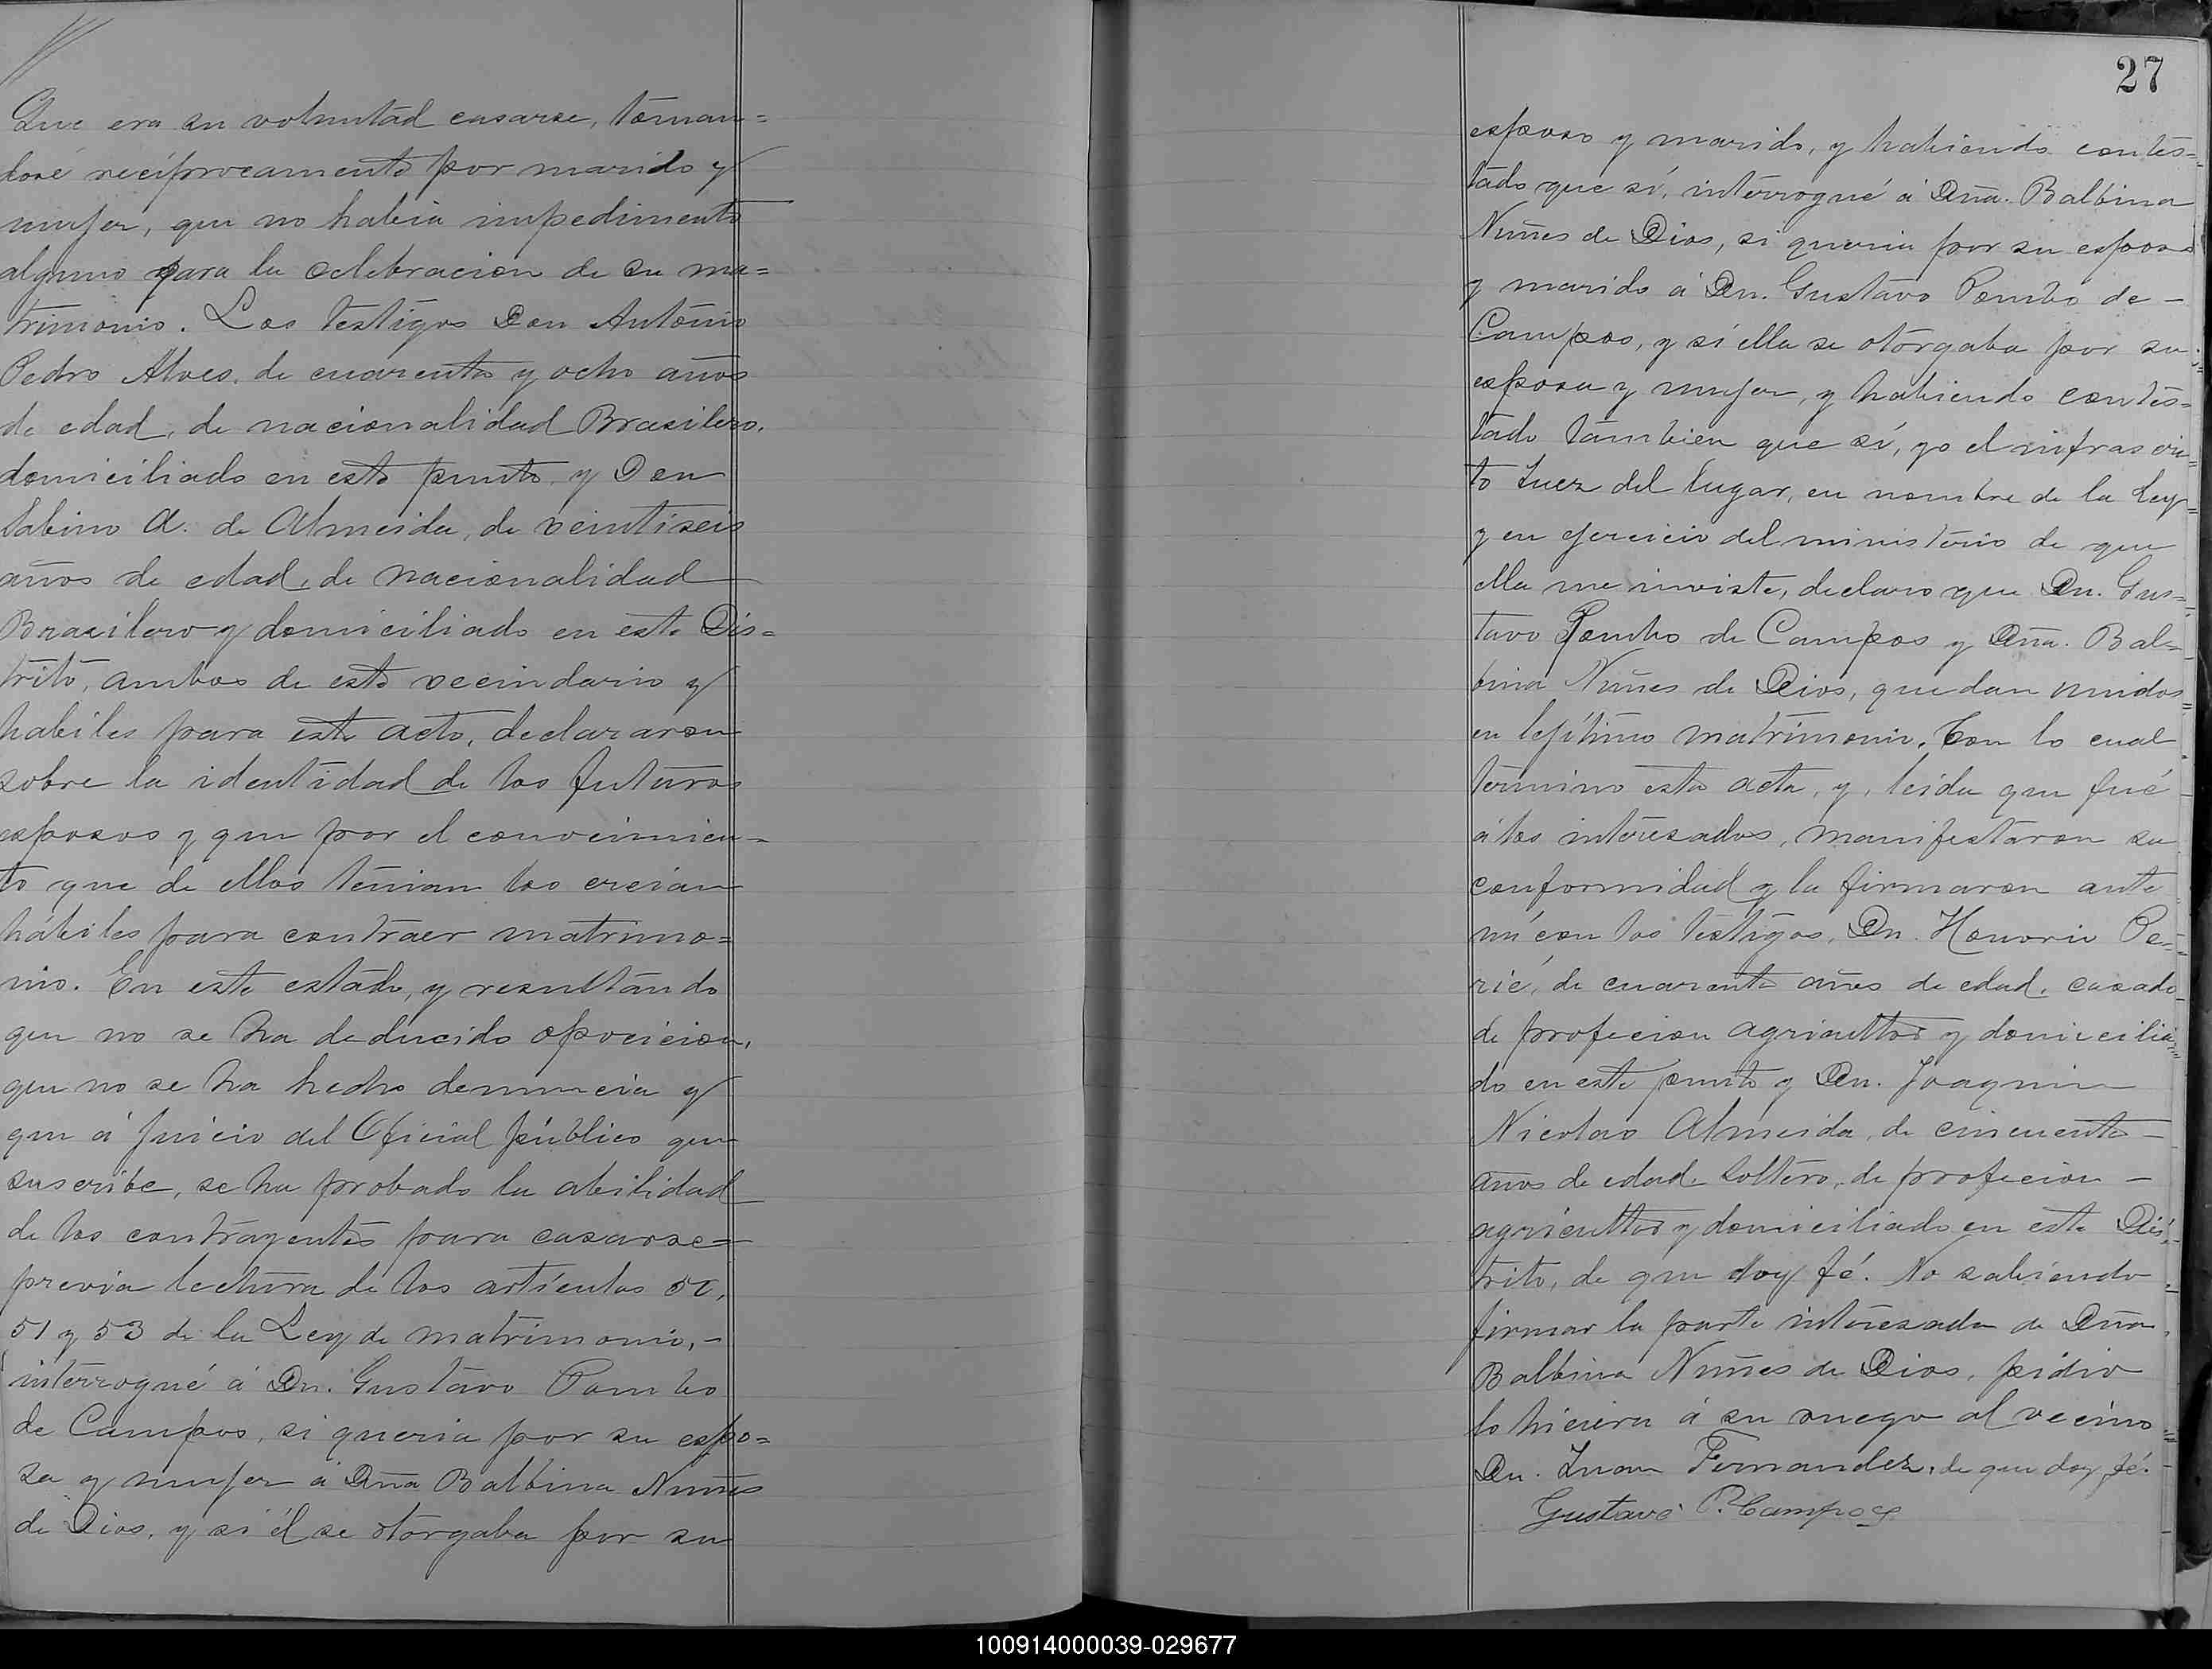 Que era su voluntad casarse, toman=
dose recíprocamente por marido y
mujer, que no habia impedimento
alguno para la celebracion de su ma=
trimonio. Los testigos Don Antonio
Pedro Alves, de cuarenta y ocho años
de edad, de nacionalidad Brasilero,
domiciliado en este punto, y Don
Sabino A. de Almeida, de veintiseis
años de edad, de nacionalidad
Brasilero y domiciliado en este Dis=
trito, ambos de este vecindario y
habiles para este acto, declararon
sobre la identidad de los futuros
esposos y que por el conocimien=
to que de ellos tenian los creian
hábiles para contraer matrimo=
nio. En este estado, y resultando
que no se ha deducido oposicion,
que no se ha hecho denuncia y
que á juicio del Oficial público que
suscribe, se ha probado la abilidad
de los contrayentes para casarse=
previa lectura de los artículos 50,
51 y 53 de la Ley de matrimonio,-
interrogué á Dn. Gustavo Pombo
de Campos, si queria por su espo=
sa y mujer á Dña Balbina Nuñes
de Dios, y si él se otorgaba por su
27
esposo y marido, y habiendo contes=
tado que sí, interrogué á Dña. Balbina
Nuñes de Dios, si queria por su esposo
y marido á Dn. Gustavo Pombo de -
Campos, y si ella se otorgaba por su
esposa y mujer, y habiendo contes=
tado tambien que sí, yo el infrascri=
to Juez del lugar, en nombre de la Ley
y en ejercicio del ministerio de que
ella me inviste, declaro que Dn. Gus=
tavo Pombo de Campos y Dña. Bal=
bina Nuñes de Dios, quedan unidos
en lejítimo matrimonio. Con lo cual
termino esta acta, y, leida que fué
á los interesados, manifestaron su
conformidad y la firmaron ante
mí con los testigos, Dn. Honorio Pe=
rié, de cuarenta años de edad, casado
de profecion agricultor y domicilia=
do en este punto y Dn. Joaquin
Nicolao Almeida, de cincuenta -
años de edad, soltero, de profecion -
agricultor y domiciliado en este Dis=
trito, de que doy fé. No sabiendo
firmar la parte interesada de Dña.
Balbina Nuñes de Dios, pidio
lo hiciera á su ruego al vecino
Dn. Juan Fernandez, de que doy fé.
Gustavo P. Campos
100914000039-029677